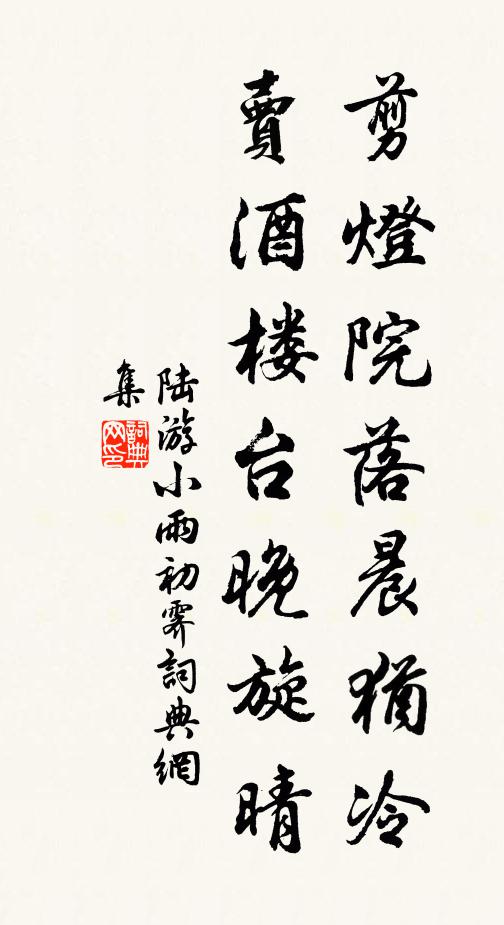 剪燈院落晨猶冷
賣酒楼台晚旋晴
陆游小雨初霽詞典網
集
詞典网印